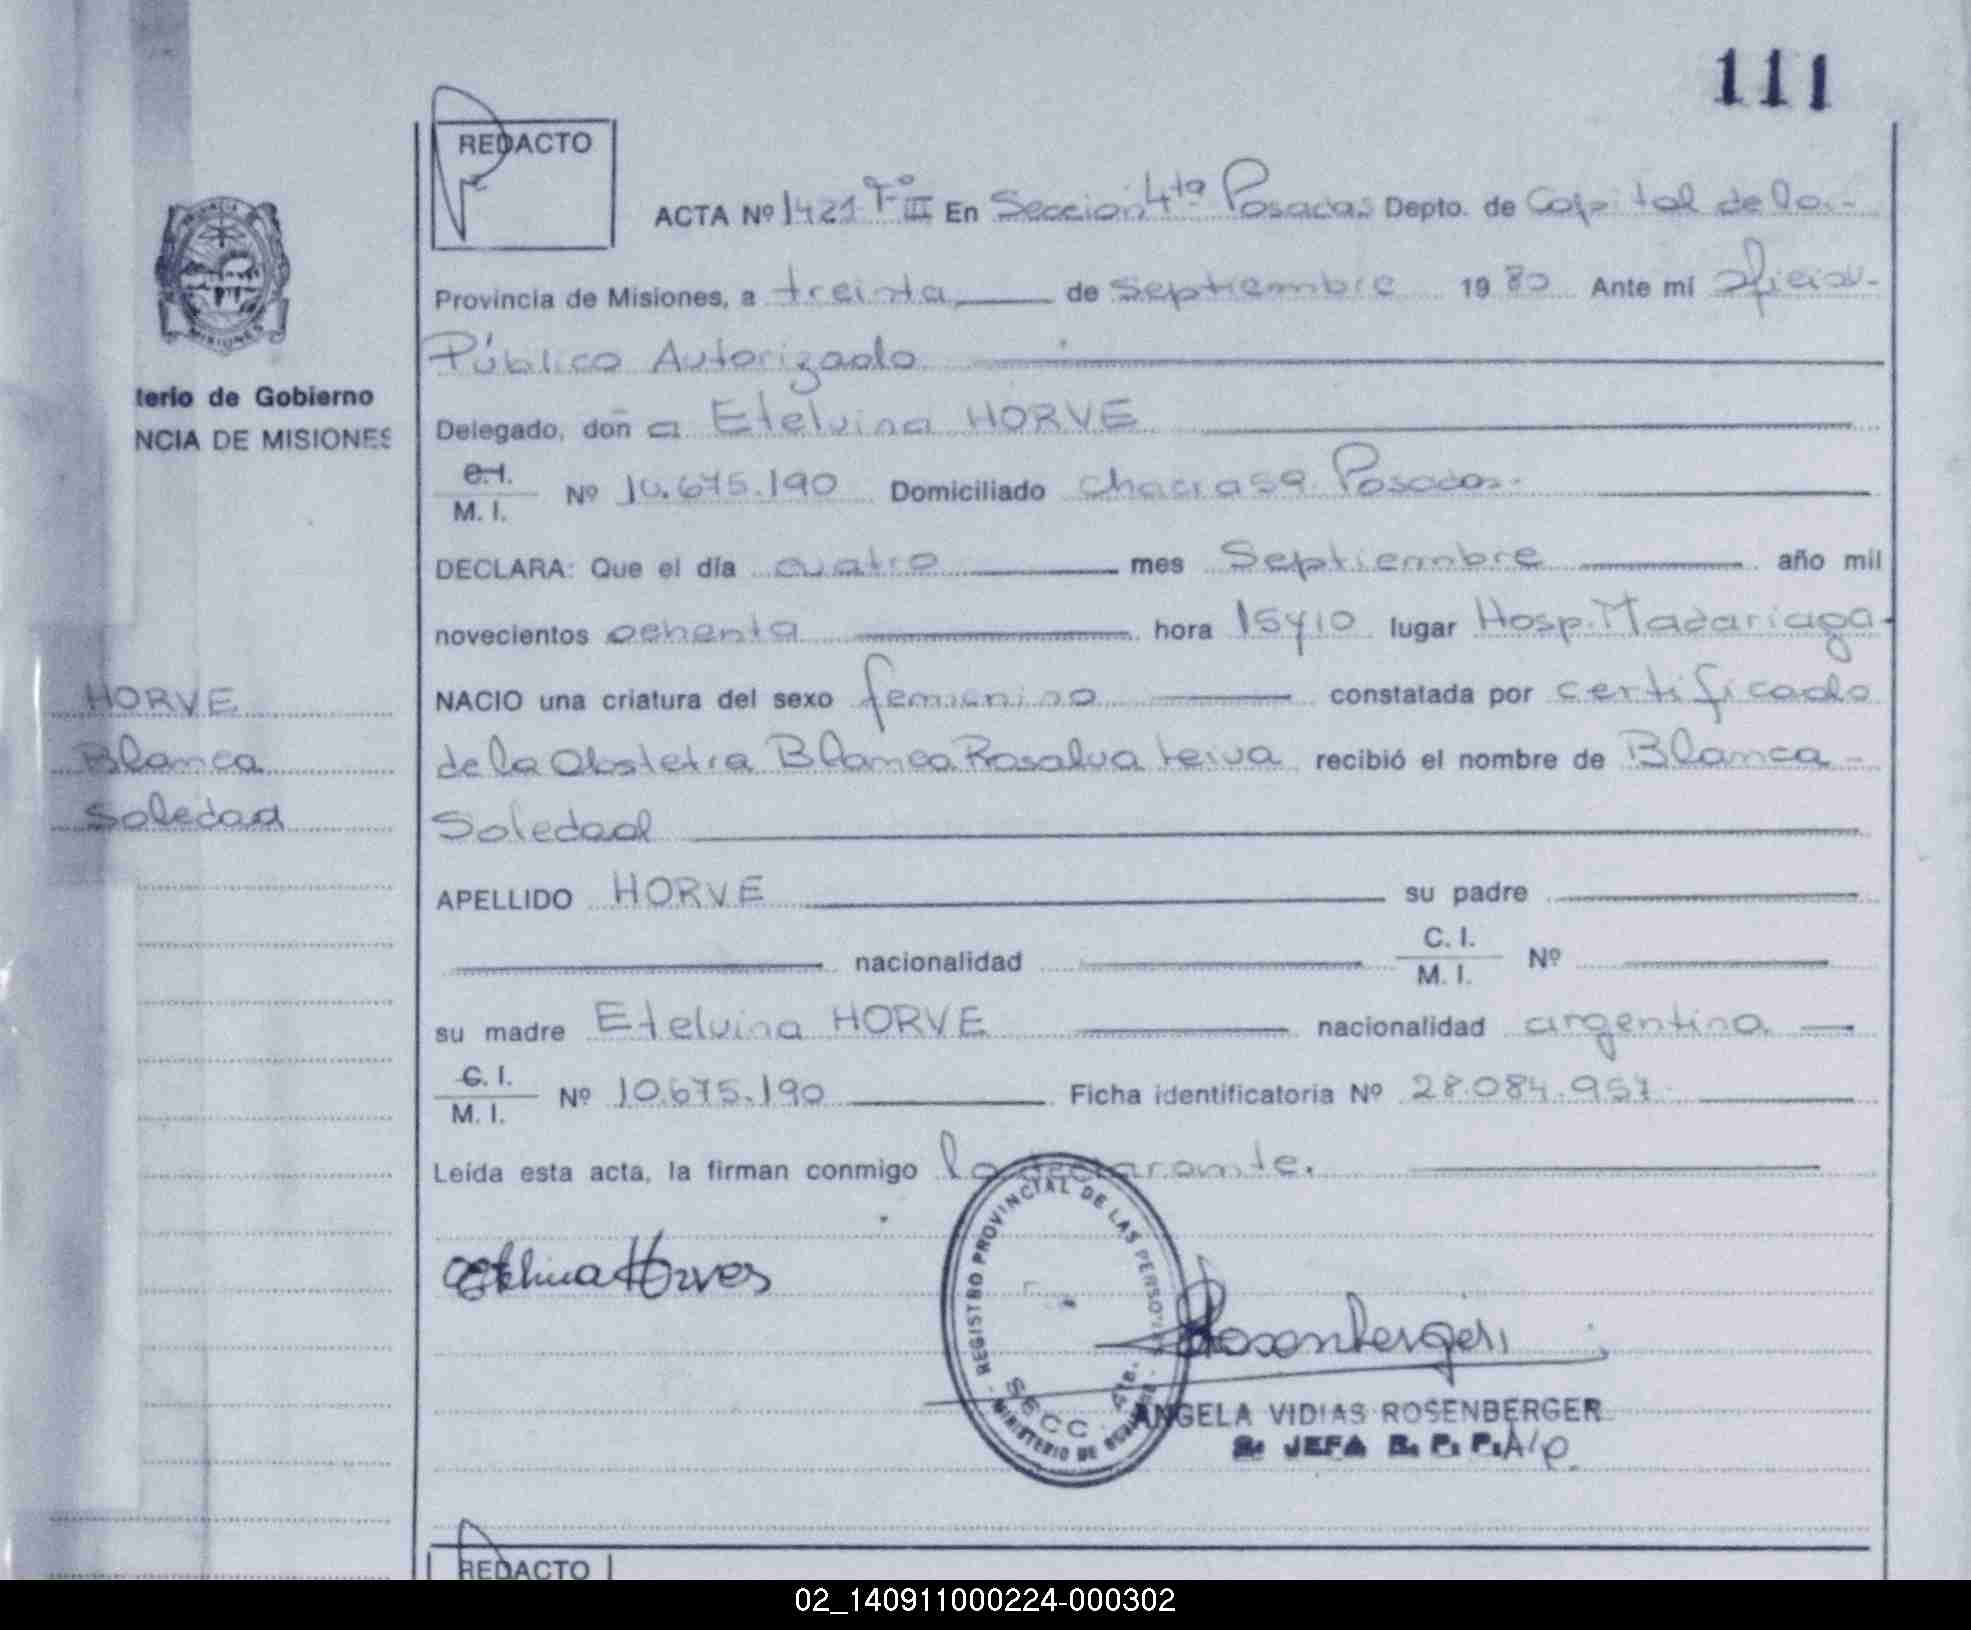 111
REDACTO
ACTA Nº 1421 Tº III En Sección 4ta Posadas Depto. de Capital de la.-
Provincia de Misiones, a treinta de Septiembre 1980 Ante mí oficial-
Público Autorizado
terio de Gobierno
NCIA DE MISIONES
Delegado, doñ a Etelvina HORVE
C.I.
M. I. Nº 10.675.190 Domiciliado chacra 59 Posadas.-
DECLARA: Que el día cuatro mes Septiembre año mil
novecientos ochenta hora 15y10 lugar Hosp. Madariaga-
HORVE
Blanca
Soledad
NACIO una criatura del sexo femenino constatada por certificado
de la Obstetra Blanca Rosalva recibió el nombre de Blanca -
Soledad
APELLIDO HORVE su padre
nacionalidad C. I.
M. I. Nº
su madre Etelvina HORVE nacionalidad argentina
C. I.
M. I. Nº 10.675.190 Ficha identificatoria Nº 28.084.957
Leída esta acta, la firman conmigo la declarante.
Etelvina Horves
REGISTRO PROVINCIAL DE LAS PERSONAS
SECC. 4ta.
MINISTERIO DE GOBIERNO
Rosenberger
ANGELA VIDIAS ROSENBERGER
2º JEFA R. P. P. A/C.
REDACTO
02_140911000224-000302